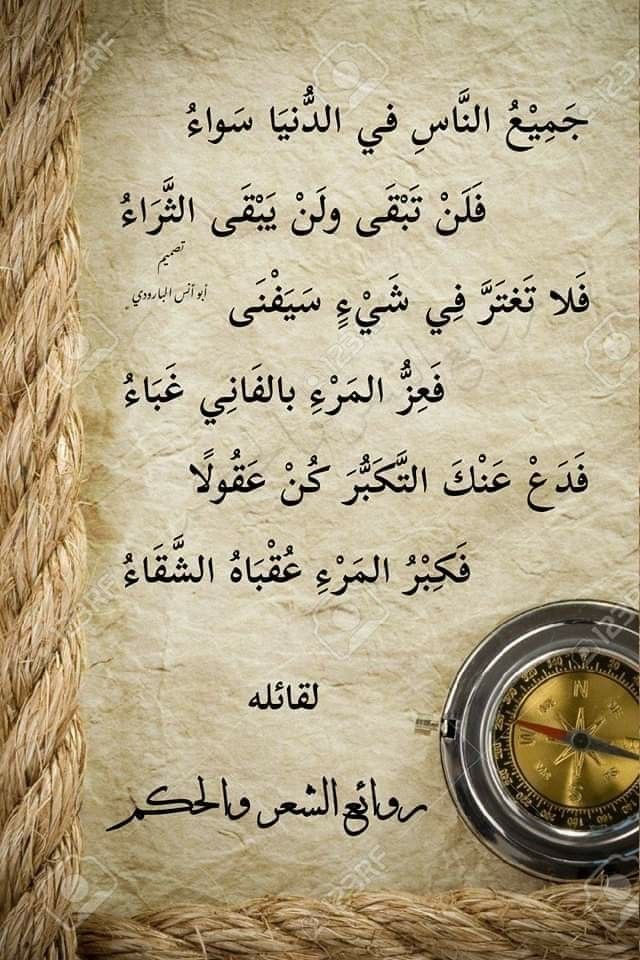 جَمِيْعُ النَّاسِ في الدُّنيَا سَواءُ
فَلَنْ تَبْقَى ولَنْ يَبْقَى الثَّرَاءُ
تصميم
أبو أنس البارودي
فَلا تَغتَرَّ فِي شَيْءٍ سَيَفْنَى
فَعِزُّ المَرْءِ بالفَانِي غَبَاءُ
فَدَعْ عَنْكَ التَّكَبُّرَ كُنْ عَقُولًا
فَكِبْرُ المَرْءِ عُقْبَاهُ الشَّقَاءُ
لقائله
روائع الشعر والحكم
123RF
N
W
S